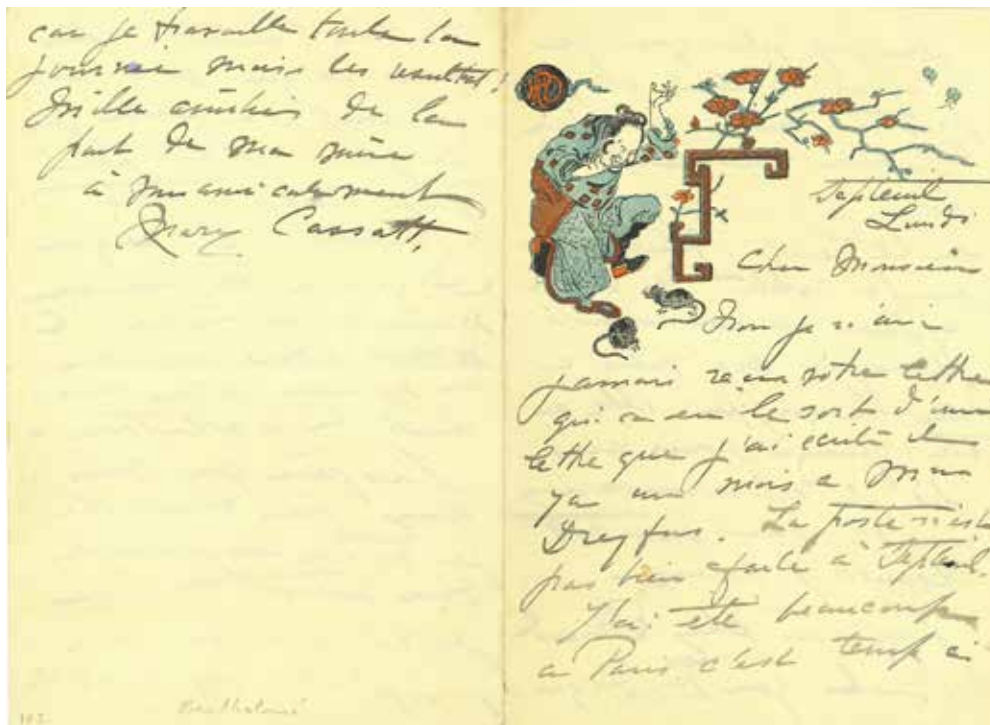 car je travaille toute la
journée mais les resultat!
Mille amitiés de la
part de ma mère
à amicalement
Mary Cassatt,
Bartholomé
Septeuil
Lundi
Cher Monsieur
Non je n'ai
jamais reçu votre lettre
qui a eu le sort d'une
lettre que j'ai ecrite il
ya un mois a Mme
Dreyfus. La poste n'est
pas bien faite à Septeuil.
J'ai ete beaucoup
a Paris c'est temps ci